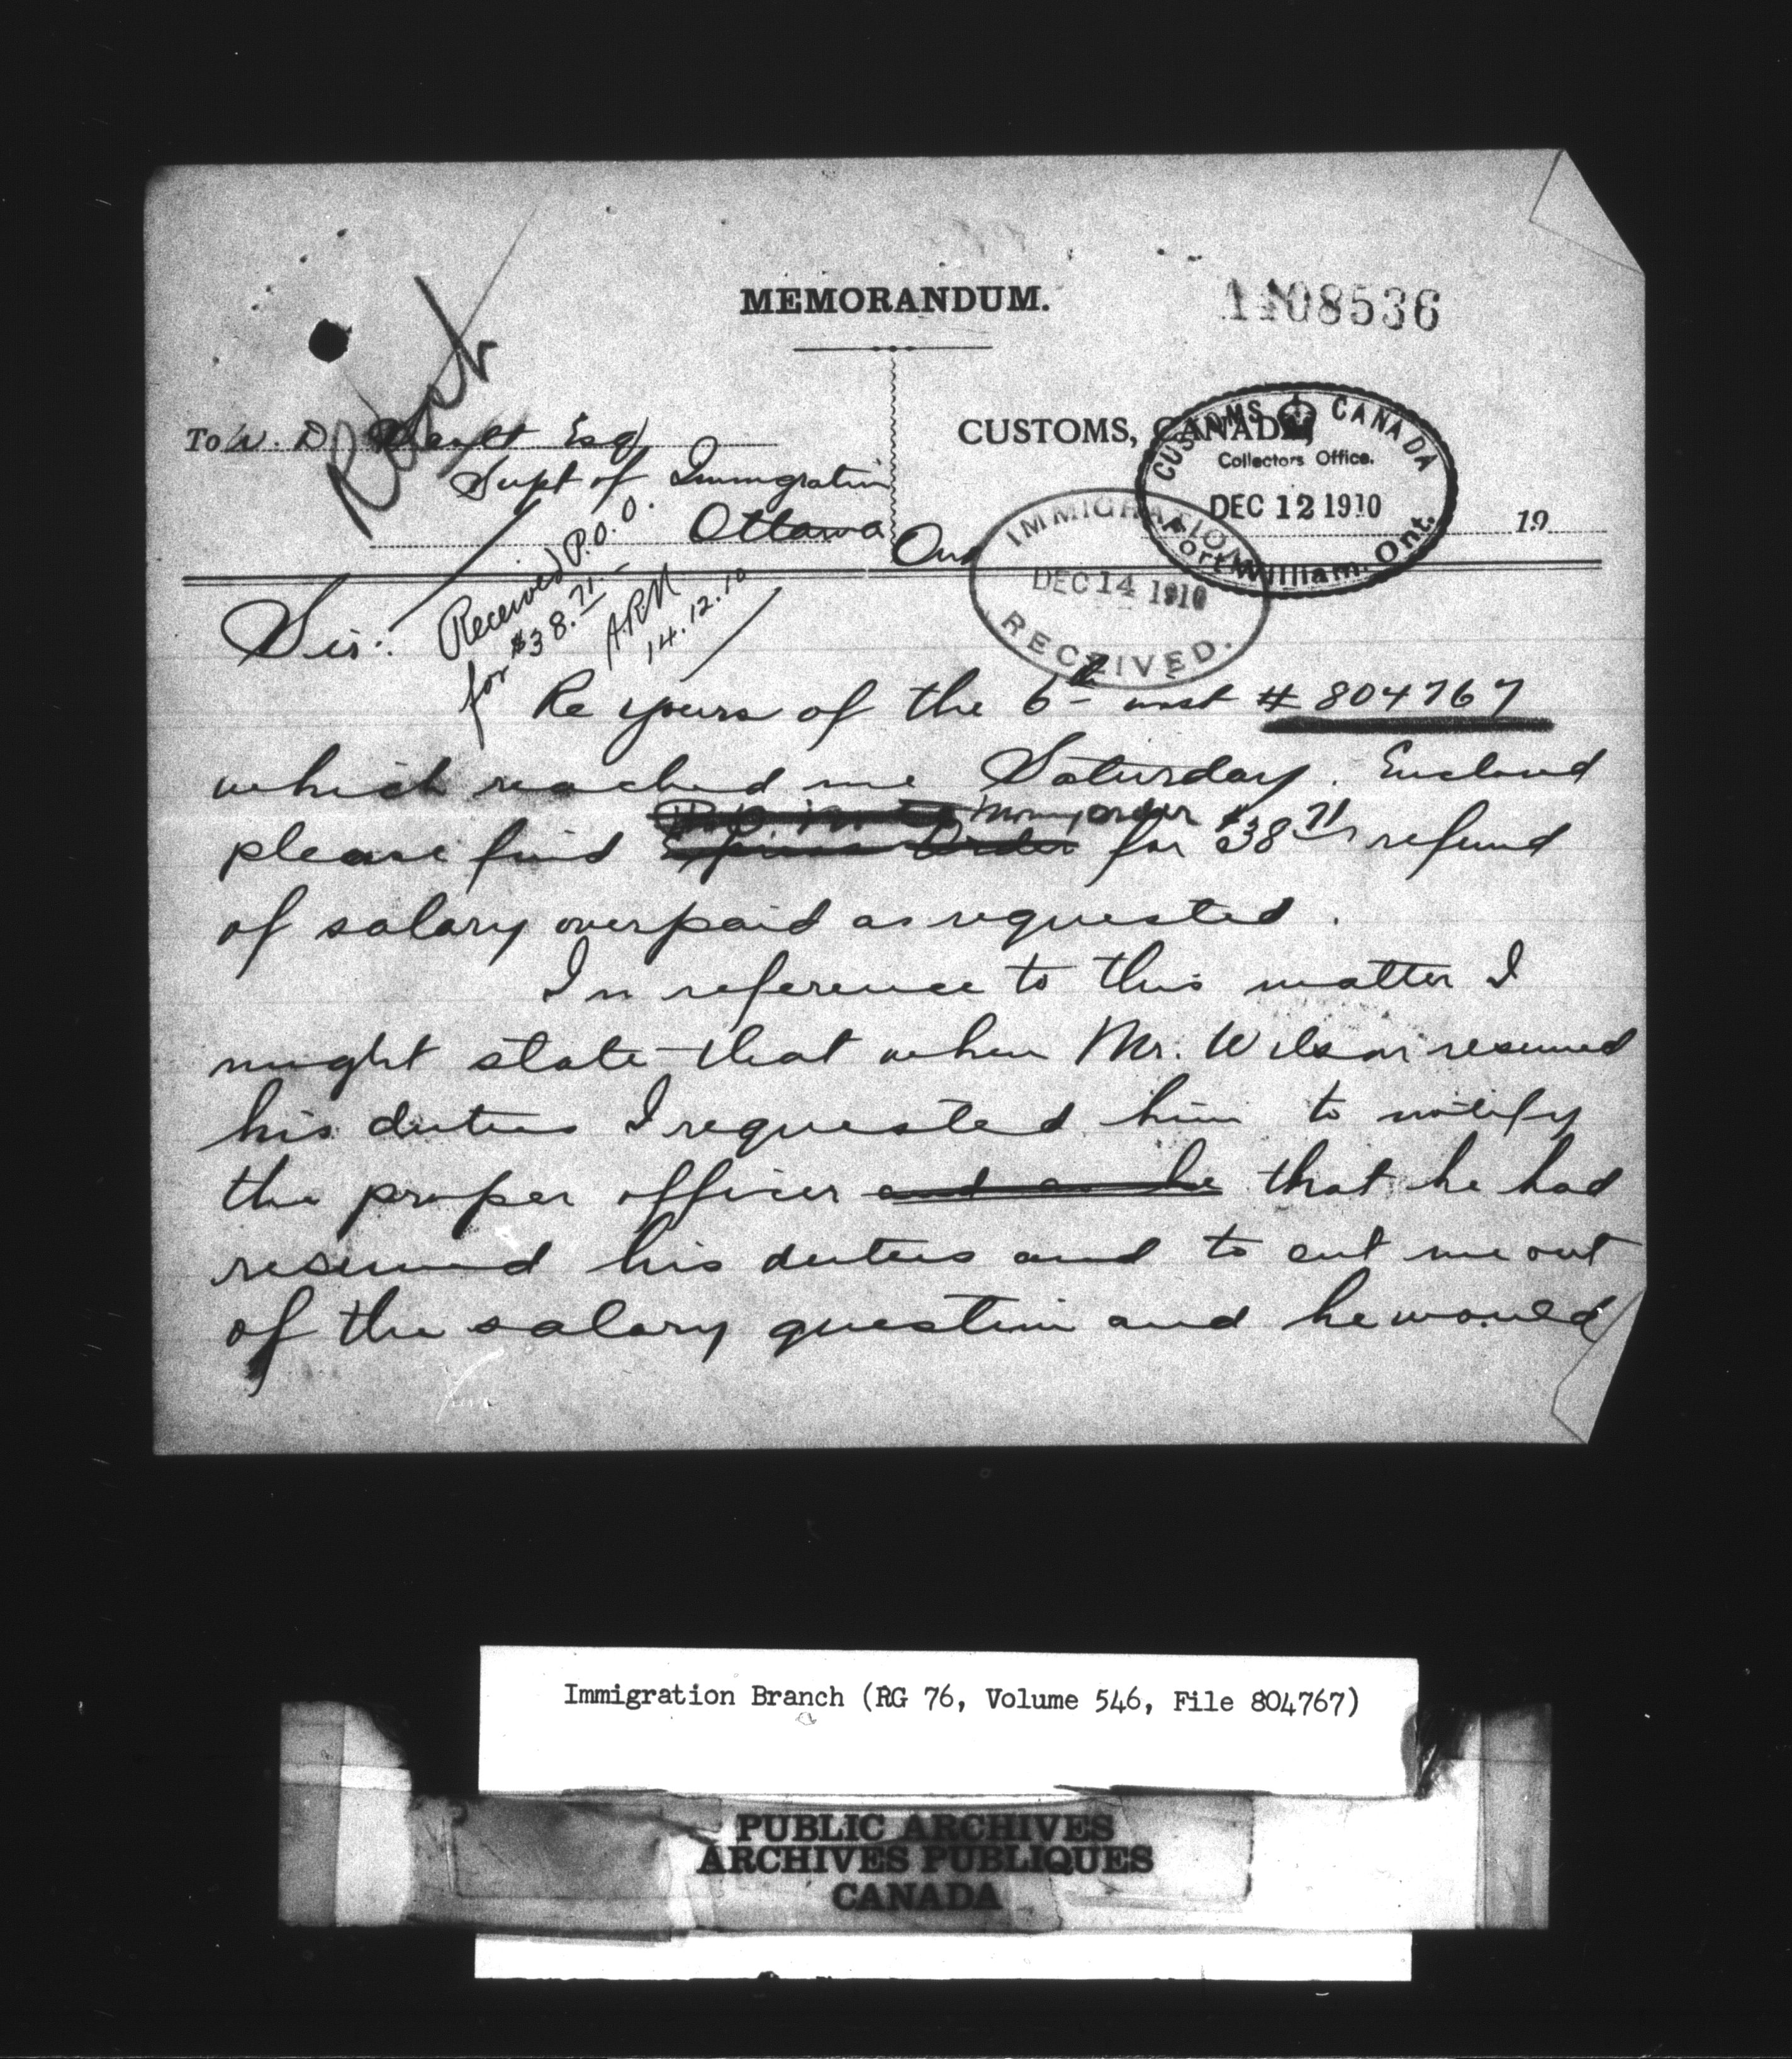 MEMORANDUM.
1108536
To W. D. Scott Esq
Supt of Immigration
Ottawa Ont
CUSTOMS, CANADA,
CUSTOMS CANADA
Collectors Office.
DEC 12 1910
Fort William. Ont.
19
IMMIGRATION
DEC 14 1910
RECEIVED.
Received P.O.O.
for $38.71.-
14.12.10
Sir:
Re yours of the 6th inst # 804767
which reached me Saturday. Enclosed
Money order
please find Express Order for $38 71 refund
of salary overpaid as requested.
In reference to this matter I
might state that when Mr. Wilson resumed
his duties I requested him to notify
the proper officer and as he that he had
resumed his duties and to cut me out
of the salary question and he would
Immigration Branch (RG 76, Volume 546, File 804767)
PUBLIC ARCHIVES
ARCHIVES PUBLIQUES
CANADA